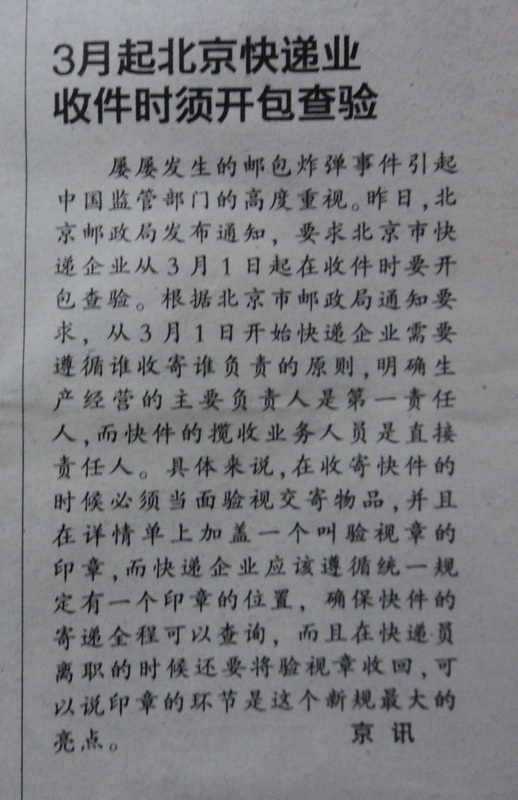 3月起北京快递业
收件时须开包查验
屡屡发生的邮包炸弹事件引起
中国监管部门的高度重视。昨日,北
京邮政局发布通知，要求北京市快
递企业从3月1日起在收件时要开
包查验。根据北京市邮政局通知要
求，从3月1日开始快递企业需要
遵循谁收寄谁负责的原则,明确生
产经营的主要负责人是第一责任
人,而快件的揽收业务人员是直接
责任人。具体来说,在收寄快件的
时候必须当面验视交寄物品,并且
在详情单上加盖一个叫验视章的
印章,而快递企业应该遵循统一规
定有一个印章的位置，确保快件的
寄递全程可以查询，而且在快递员
离职的时候还要将验视章收回,可
以说印章的环节是这个新规最大的
亮点。 京讯